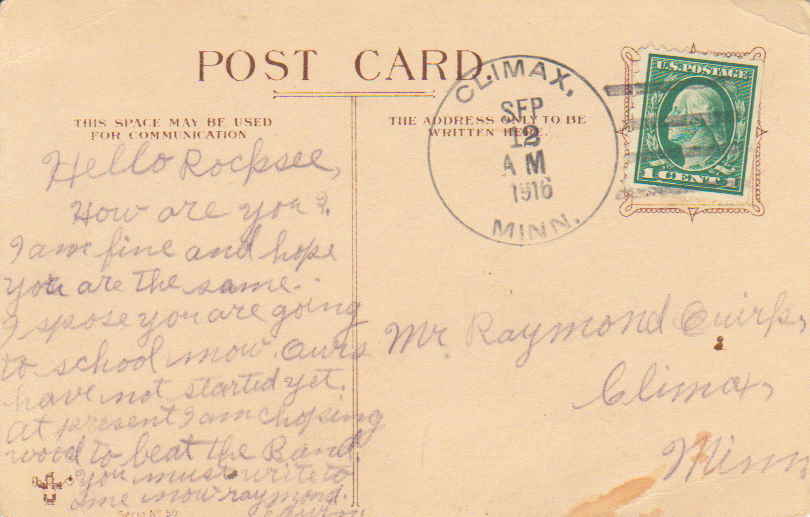 POST CARD.
THIS SPACE MAY BE USED
FOR COMMUNICATION
THE ADDRESS ONLY TO BE
WRITTEN HERE.
CLIMAX,
SEP
12
A M
1916
MINN.
U.S. POSTAGE
1 CENT 1
Hello Rocksee,
How are you?
I am fine and hope
you are the same.
I spose you are going
to school now. Ours
have not started yet.
At present I am choping
wood to beat the Band
you must write to
me now raymond.
Mr. Raymond
Climax,
Minn